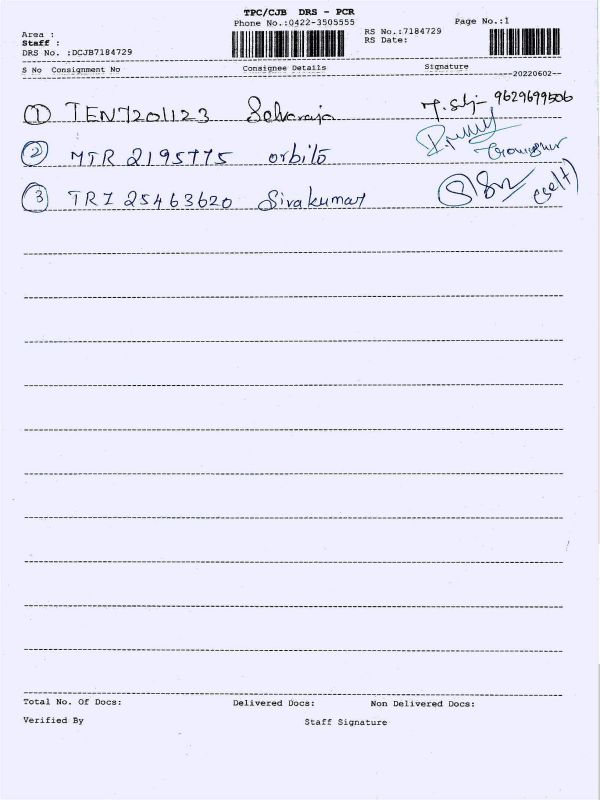 TPC/CJB DRS - PCR
Phone No.:0422-3505555
Page No.:1
Area :
RS No.:7184729
Staff :
RS Date:
DRS No. :DCJB7184729
S No Consignment No Consignee Details Signature
--20220602--
1 TEN7201123 Selvaraja 9629699506
2 MTR 2195775 orbito
3 TRI 25463620 Sivakumar (self)
Total No. Of Docs: Delivered Docs: Non Delivered Docs:
Verified By Staff Signature